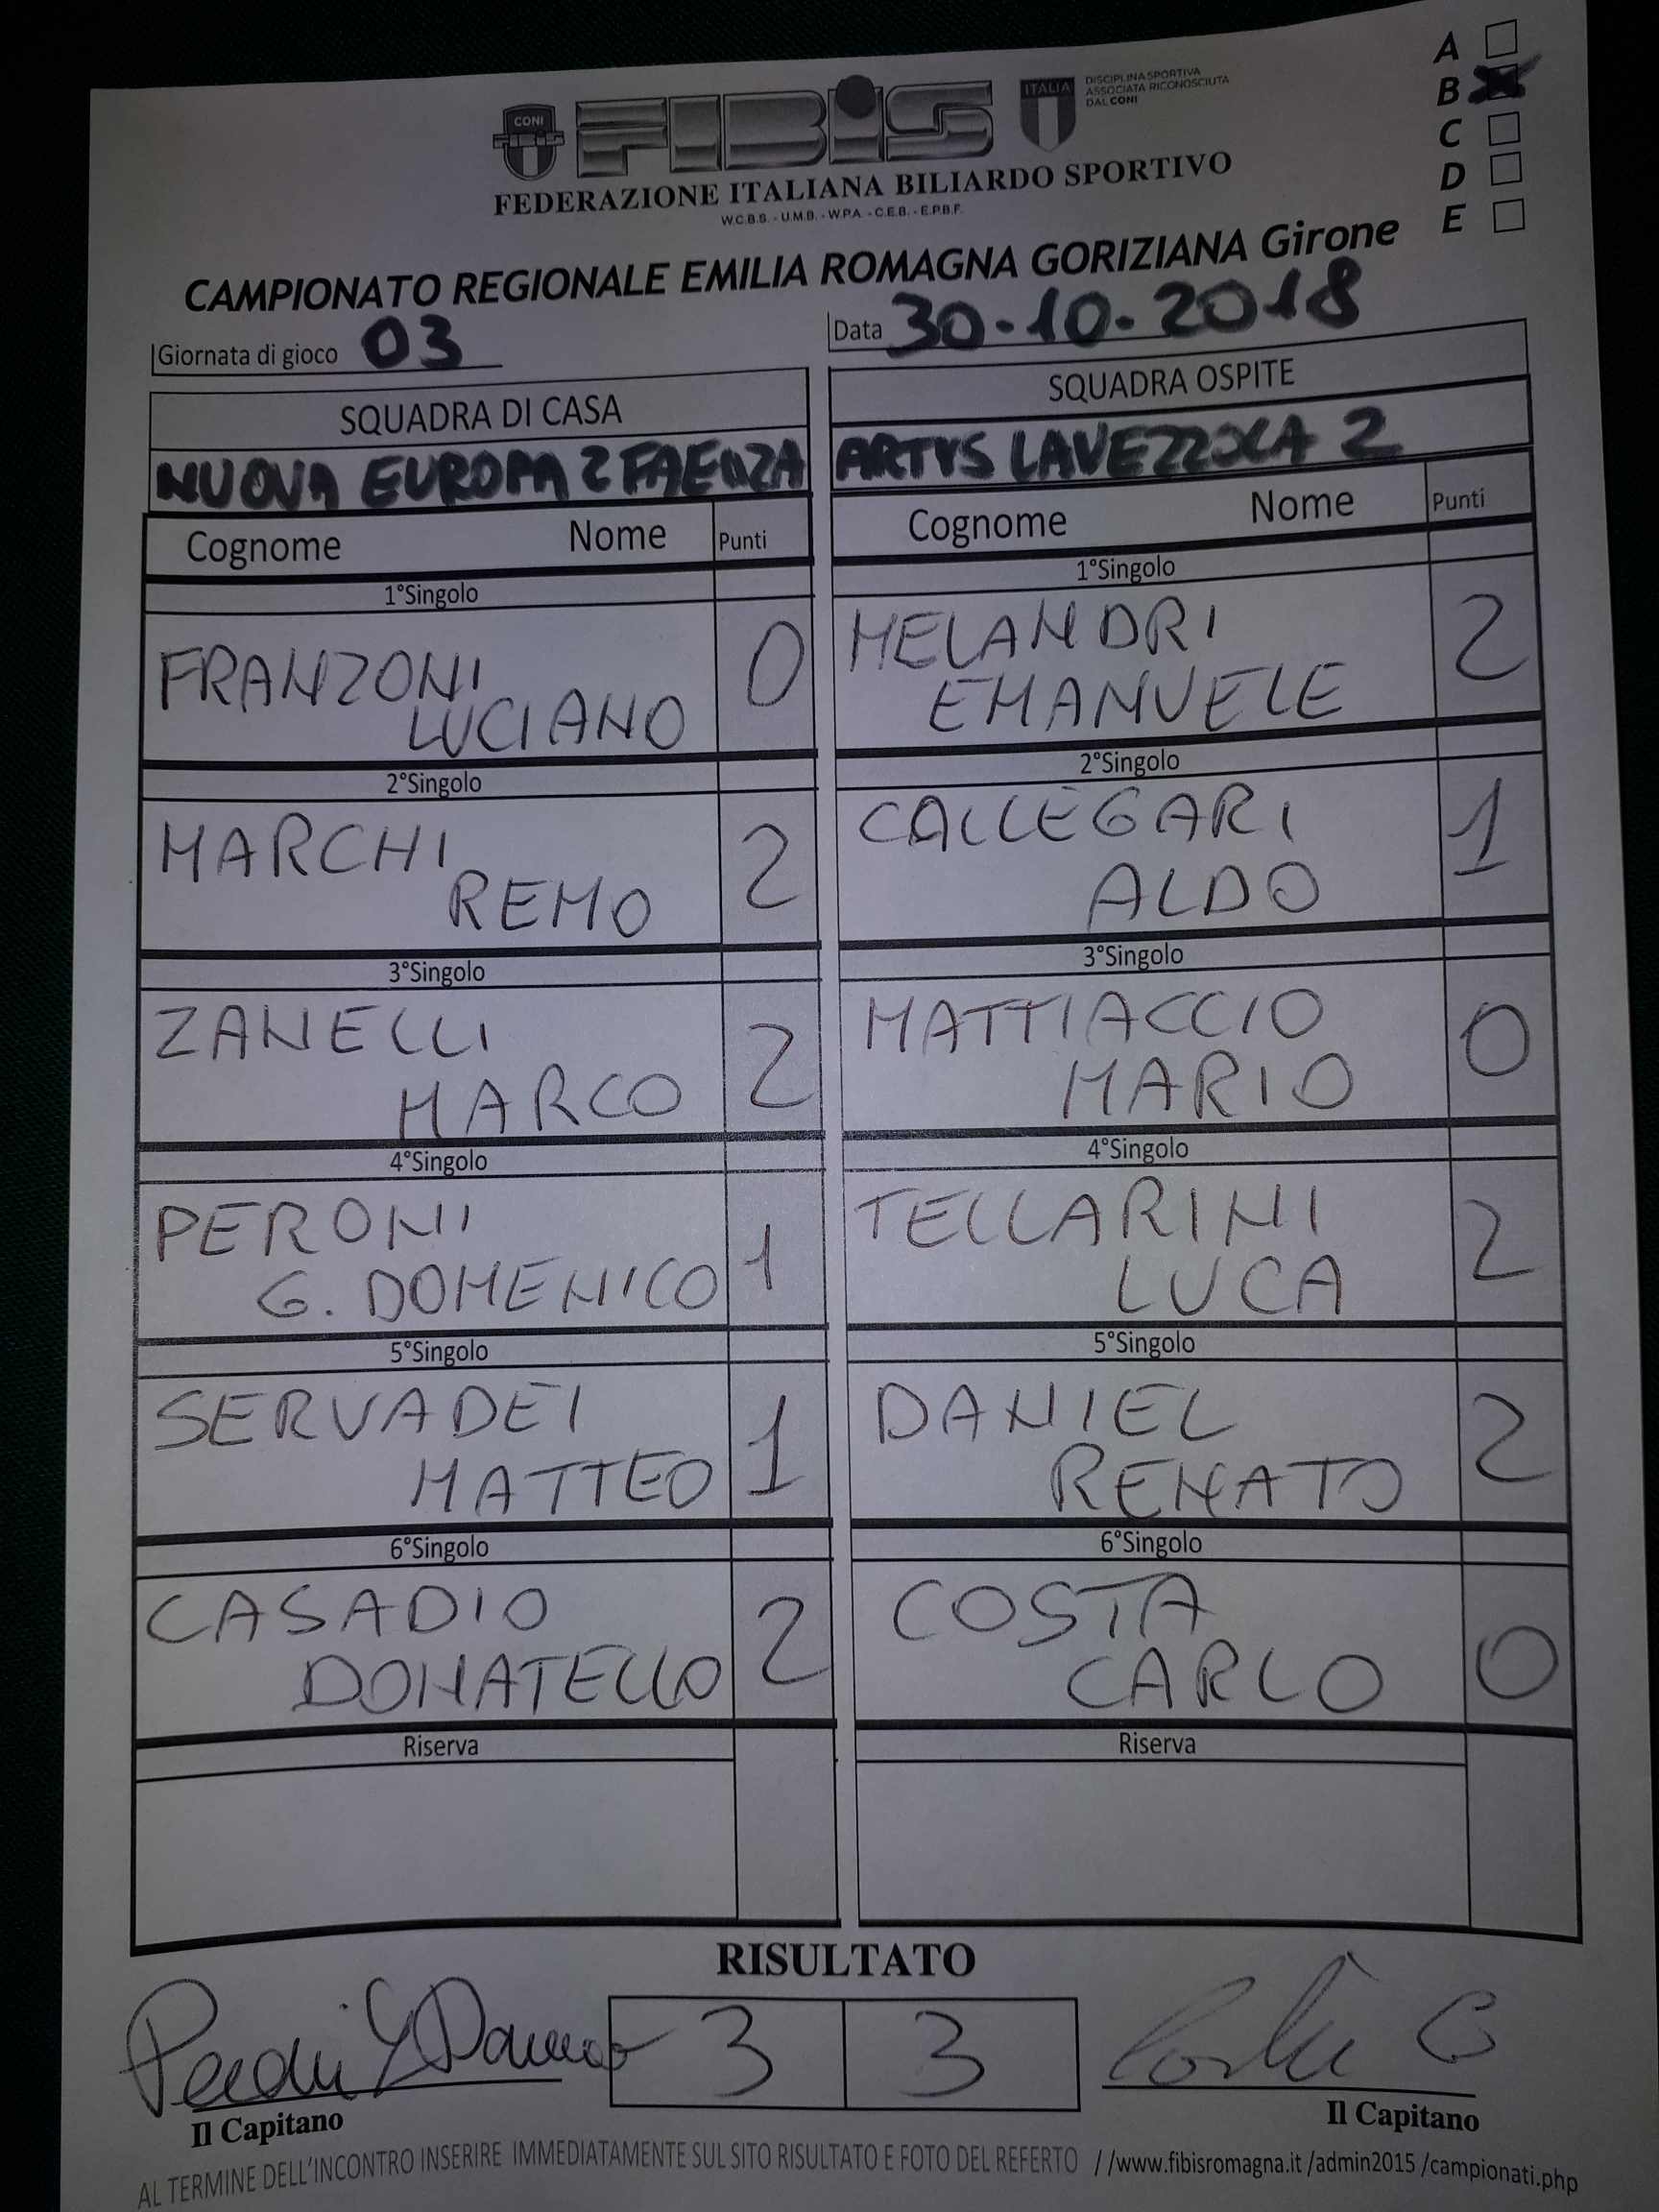 A
B
C
D
E
CONI
FIBiS
ITALIA
DISCIPLINA SPORTIVA
ASSOCIATA RICONOSCIUTA
DAL CONI
FEDERAZIONE ITALIANA BILIARDO SPORTIVO
W.C.B.S. - U.M.B. - W.P.A. - C.E.B. - E.P.B.F.
CAMPIONATO REGIONALE EMILIA ROMAGNA GORIZIANA Girone
Giornata di gioco 03
Data 30-10-2018
SQUADRA DI CASA
SQUADRA OSPITE
NUOVA EUROPA 2 FAENZA
ARTYS LAVEZZOLA 2
Cognome Nome Punti
Cognome Nome Punti
1°Singolo
1°Singolo
FRANZONI
LUCIANO
0
MELANDRI
EMANUELE
2
2°Singolo
2°Singolo
MARCHI
REMO
2
CALLEGARI
ALDO
1
3°Singolo
3°Singolo
ZANELLI
MARCO
2
MATTIACCIO
MARIO
0
4°Singolo
4°Singolo
PERONI
G. DOMENICO
1
TELLARINI
LUCA
2
5°Singolo
5°Singolo
SERVADEI
MATTEO
1
DANIEL
RENATO
2
6°Singolo
6°Singolo
CASADIO
DONATELLO
2
COSTA
CARLO
0
Riserva
Riserva
RISULTATO
3 3
Il Capitano
Il Capitano
AL TERMINE DELL'INCONTRO INSERIRE IMMEDIATAMENTE SUL SITO RISULTATO E FOTO DEL REFERTO //www.fibisromagna.it /admin2015 /campionati.php